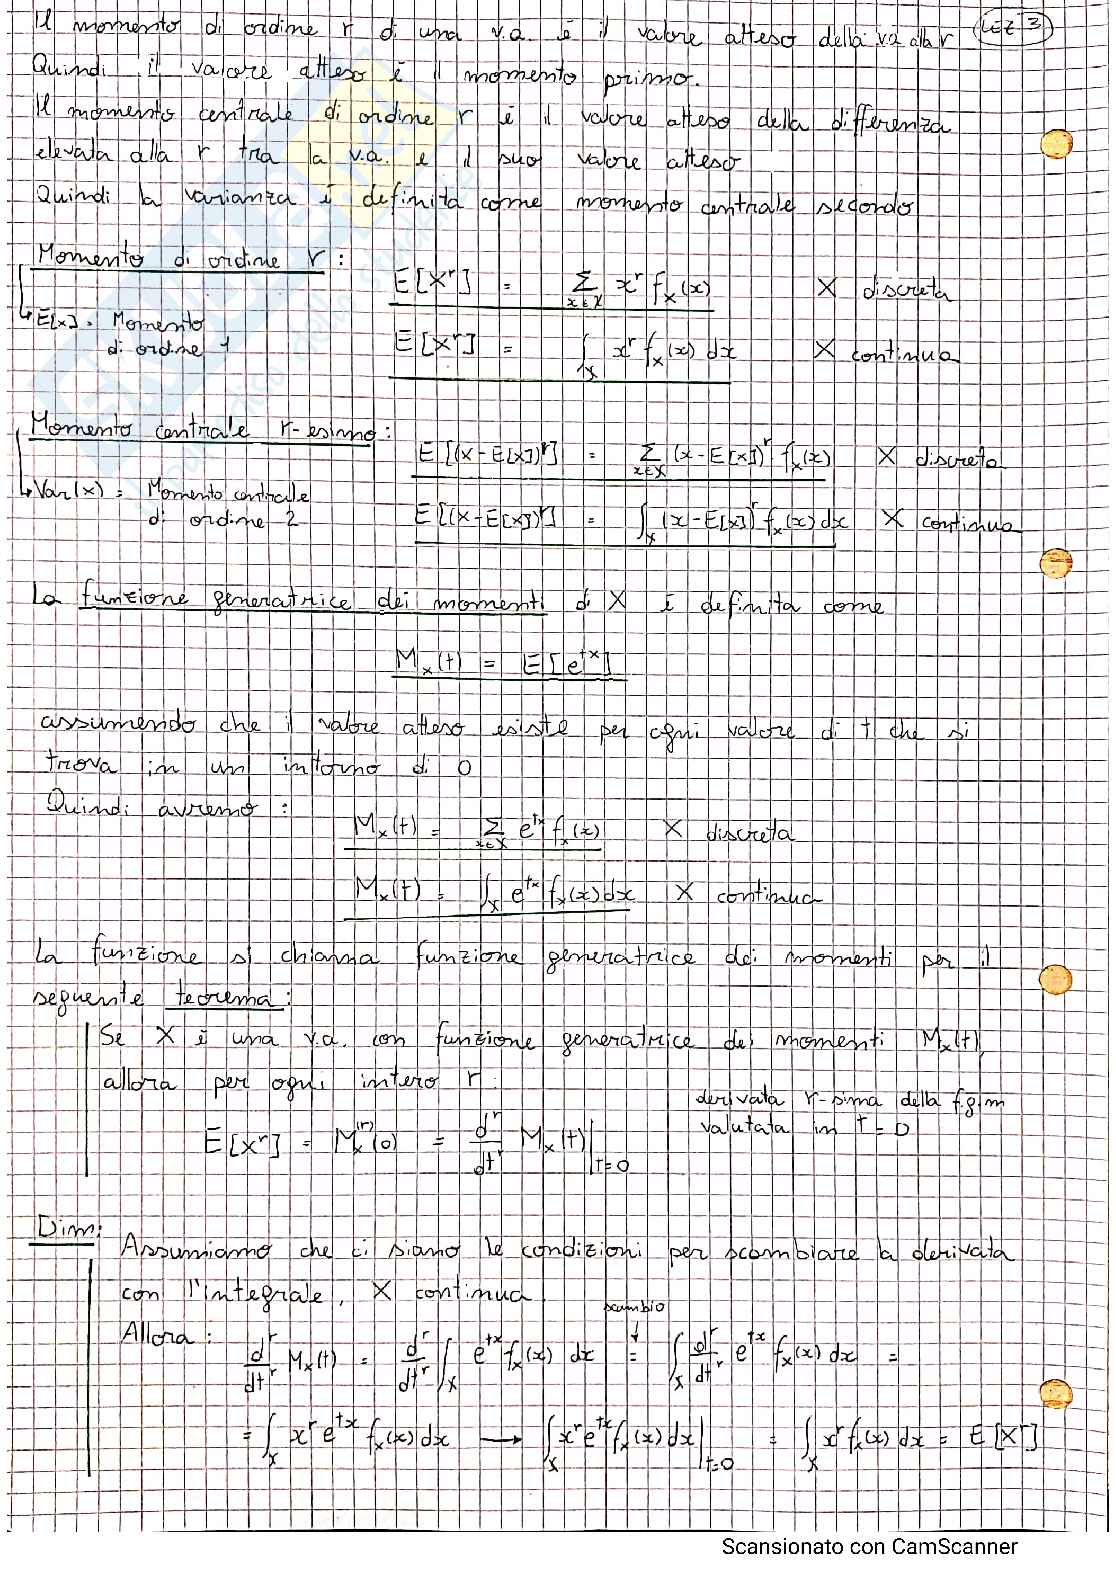 Il momento di ordine r di una v.a. è il valore atteso della v.a alla r
LEZ 3
Quindi il valore atteso è il momento primo.
Il momento centrale di ordine r è il valore atteso della differenza
elevata alla r tra la v.a. e il suo valore atteso
Quindi la varianza è definita come momento centrale secondo
Momento di ordine r :
E[X^r] = Σ_{x∈X} x^r f_X(x) X discreta
↳ E[X] = Momento di ordine 1
E[X^r] = ∫_X x^r f_X(x) dx X continua
Momento centrale r-esimo :
E[(X-E[X])^r] = Σ_{x∈X} (x-E[X])^r f_X(x) X discreta
↳ Var(X) = Momento centrale di ordine 2
E[(X-E[X])^r] = ∫_X (x-E[X])^r f_X(x) dx X continua
La funzione generatrice dei momenti di X è definita come
M_X(t) = E[e^{tX}]
assumendo che il valore atteso esiste per ogni valore di t che si
trova in un intorno di 0
Quindi avremo :
M_X(t) = Σ_{x∈X} e^{tx} f_X(x) X discreta
M_X(t) = ∫_X e^{tx} f_X(x) dx X continua
La funzione si chiama funzione generatrice dei momenti per il
seguente teorema :
Se X è una v.a. con funzione generatrice dei momenti M_X(t),
allora per ogni intero r
derivata r-sima della f.g.m
valutata in t=0
E[X^r] = M_X^{(r)}(0) = d^r/dt^r M_X(t)|_{t=0}
Dim:
Assumiamo che ci siano le condizioni per scambiare la derivata
con l'integrale, X continua
scambio ↓
Allora : d^r/dt^r M_X(t) = d^r/dt^r ∫_X e^{tx} f_X(x) dx = ∫_X d^r/dt^r e^{tx} f_X(x) dx =
= ∫_X x^r e^{tx} f_X(x) dx → ∫_X x^r e^{tx} f_X(x) dx|_{t=0} = ∫_X x^r f_X(x) dx = E[X^r]
Scansionato con CamScanner